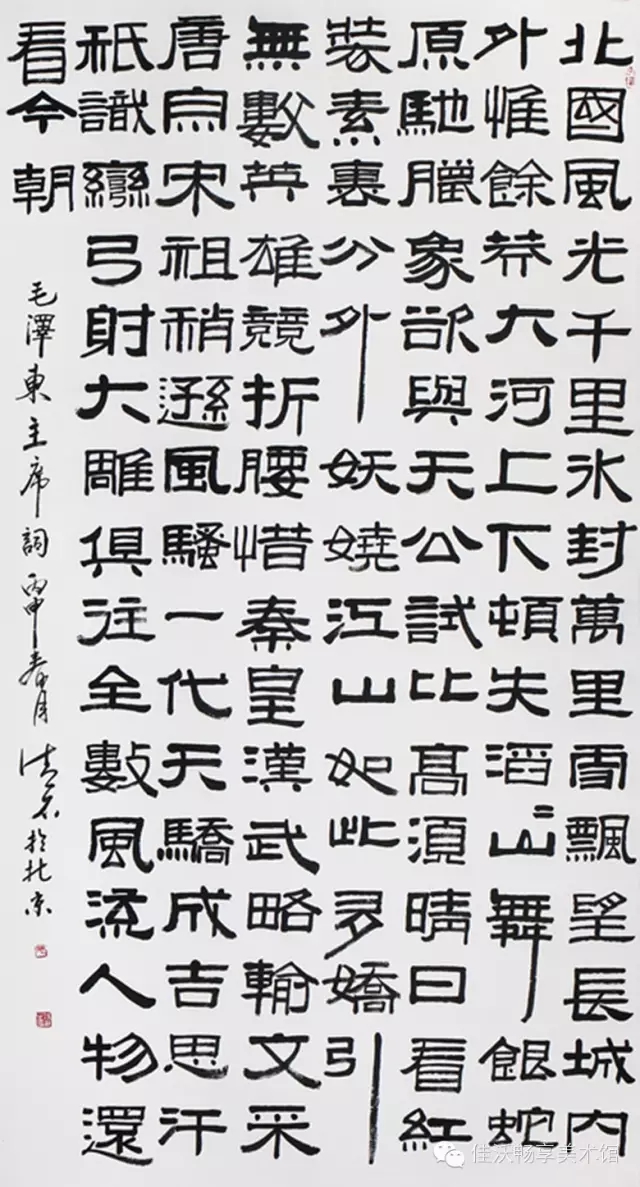 北國風光千里冰封萬里雪飄望長城內
外惟餘莽大河上下頓失滔〃山舞銀蛇
原馳臘象欲與天公試比高須晴日看紅
裝素裹分外妖嬈江山如此多嬌引
無數英雄競折腰惜秦皇漢武略輸文采
唐宗宋祖稍遜風騷一代天驕成吉思汗
祇識彎弓射大雕俱往全數風流人物還
看今朝
毛澤東主席詞丙申春月於北京
佳沃畅享美术馆